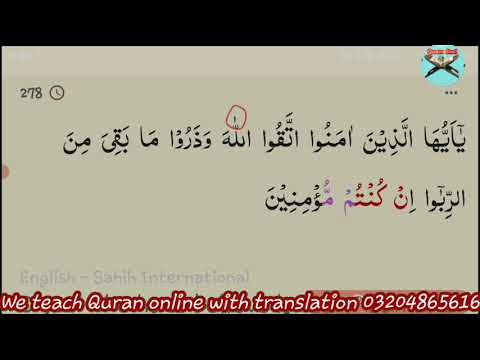 278
يٰٓاَيُّهَا الَّذِيْنَ اٰمَنُوا اتَّقُوا اللّٰهَ وَذَرُوْا مَا بَقِىَ مِنَ
الرِّبٰٓوا اِنْ كُنْتُمْ مُّؤْمِنِيْنَ
English - Sahih International
We teach Quran online with translation 03204865616